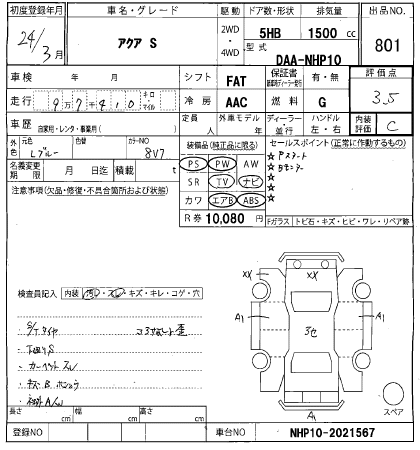 初度登録年月
24/3月
車名・グレード
アクア S
駆動
2WD
・
4WD
ドア数・形状
5HB
排気量
1500 cc
型式
DAA-NHP10
出品NO.
801
車検 年 月
シフト
FAT
保証書
有・無
評価点
3.5
走行
9万7千410
キロ・マイル
冷房
AAC
燃料
G
車歴
自家用・レンタ・事業用( )
定員
人
外車モデル
年
ディーラー・並行
ハンドル
左・右
内装評価
C
外色
元色
Lブルー
色替
カラーNO
8V7
装備品(純正品に限る)
PS PW AW
SR TV ナビ
カワ エアB ABS
セールスポイント(正常に作動するもの)
☆ Pスタート
☆ Bモニター
☆
☆
☆
名義変更期限
月 日迄
積載
t
注意事項(欠品・修復・不具合箇所および状態)
R券 10,080 円
Fガラス トビ石・キズ・ヒビ・ワレ・リペア跡
検査員記入
内装 汚レ・スレ・キズ・キレ・コゲ・穴
・S/Tタイヤ
・下回りS
・カーペットスレ
XX
XX
XX
A1
A1
3モ
A1
スペア
長さ cm
幅 cm
高さ cm
登録NO
車台NO
NHP10-2021567